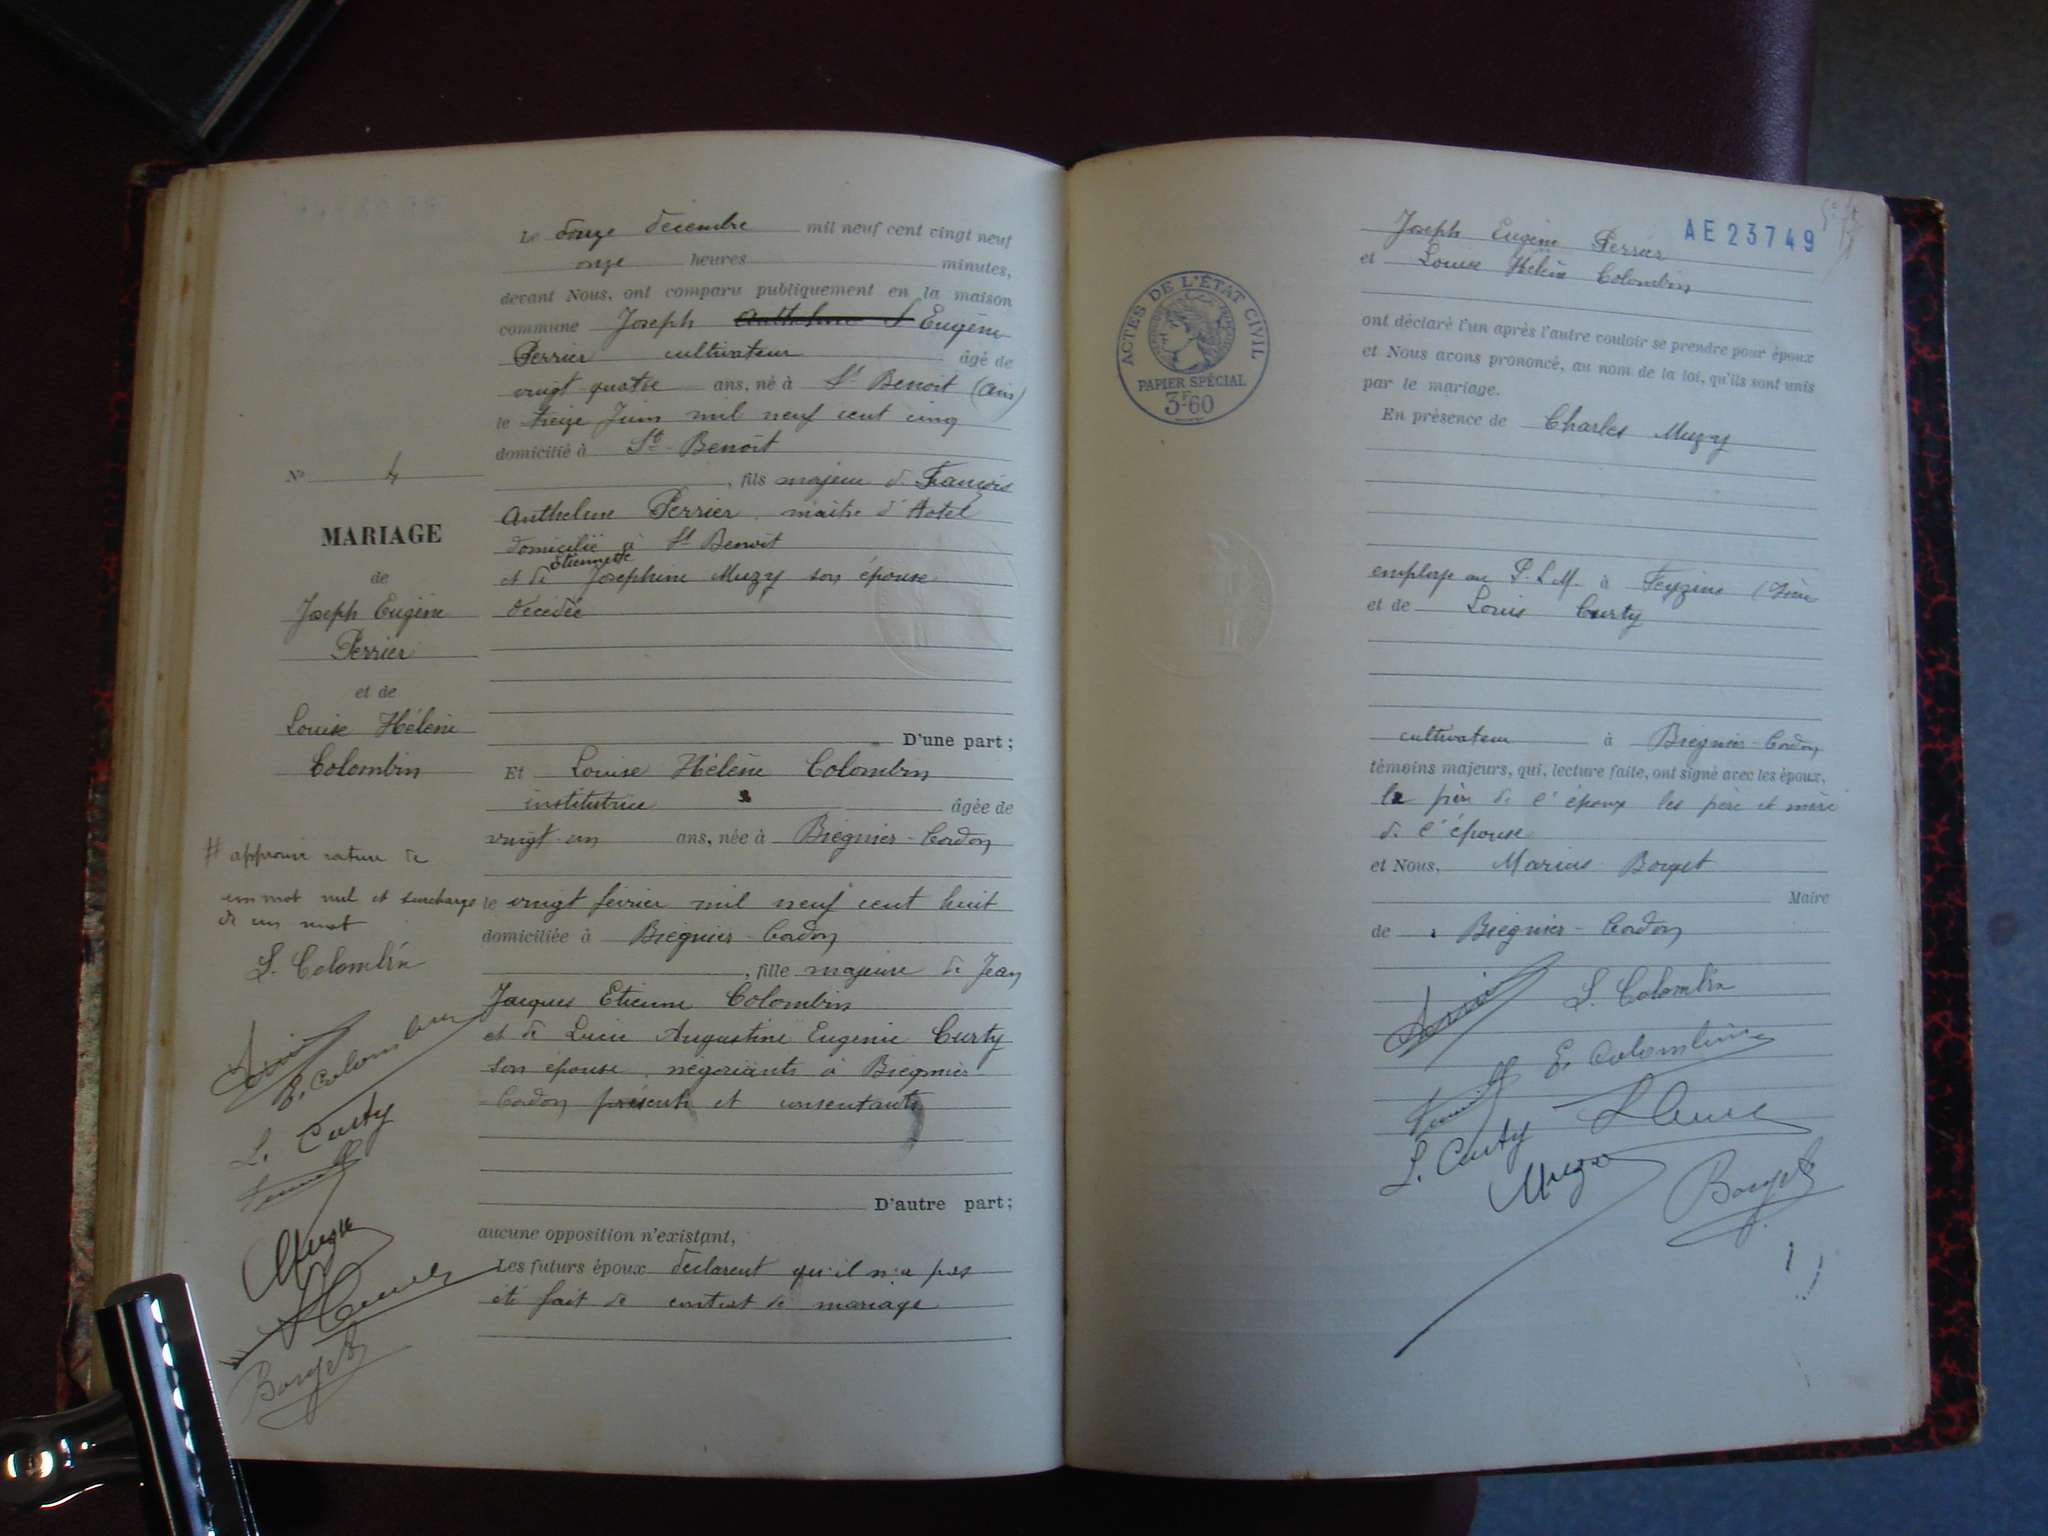 Le douze décembre mil neuf cent vingt neuf
onze heures minutes,
devant Nous, ont comparu publiquement en la maison
commune Joseph Eugène
Perrier cultivateur âgé de
vingt quatre ans, né à St Benoit (Ain)
le treize Juin mil neuf cent cinq
domicilié à St Benoit
, fils majeur de François
Anthelme Perrier, maître d'hotel
domicilié à St Benoit
Etiennette
et de Josephine Muzy son épouse
décédée
D'une part;
Et Louise Hélène Colombin
institutrice âgée de
vingt un ans, née à Brégnier-Cordon
le vingt février mil neuf cent huit
domiciliée à Brégnier-Cordon
, fille majeure de Jean
Jacques Etienne Colombin
et de Lucie Augustine Eugenie Curty
son épouse, négociants à Brégnier
Cordon présents et consentants
D'autre part;
aucune opposition n'existant,
Les futurs époux déclarent qu'il n'a pas
été fait de contrat de mariage
No 4
MARIAGE
de
Joseph Eugène
Perrier
et de
Louise Hélène
Colombin
# approuvé rature de
un mot nul et surcharge
de un mot
L. Colombin
E. Colombin
L. Curty
Muzy
Borget
AE 23749
Joseph Eugène Perrier
et Louise Hélène Colombin
ACTES DE L'ÉTAT CIVIL
PAPIER SPÉCIAL
3F60
ont déclaré l'un après l'autre vouloir se prendre pour époux
et Nous avons prononcé, au nom de la loi, qu'ils sont unis
par le mariage.
En présence de Charles Muzy
employé au P.L.M. à Feyzin (Isère
et de Louis Curty
cultivateur à Brégnier-Cordon
témoins majeurs, qui, lecture faite, ont signé avec les époux,
le père de l'époux les père et mère
de l'épouse
et Nous, Marius Borget
Maire
de Brégnier-Cordon
L. Colombin
E. Colombin
L. Curty
Muzy
Borget